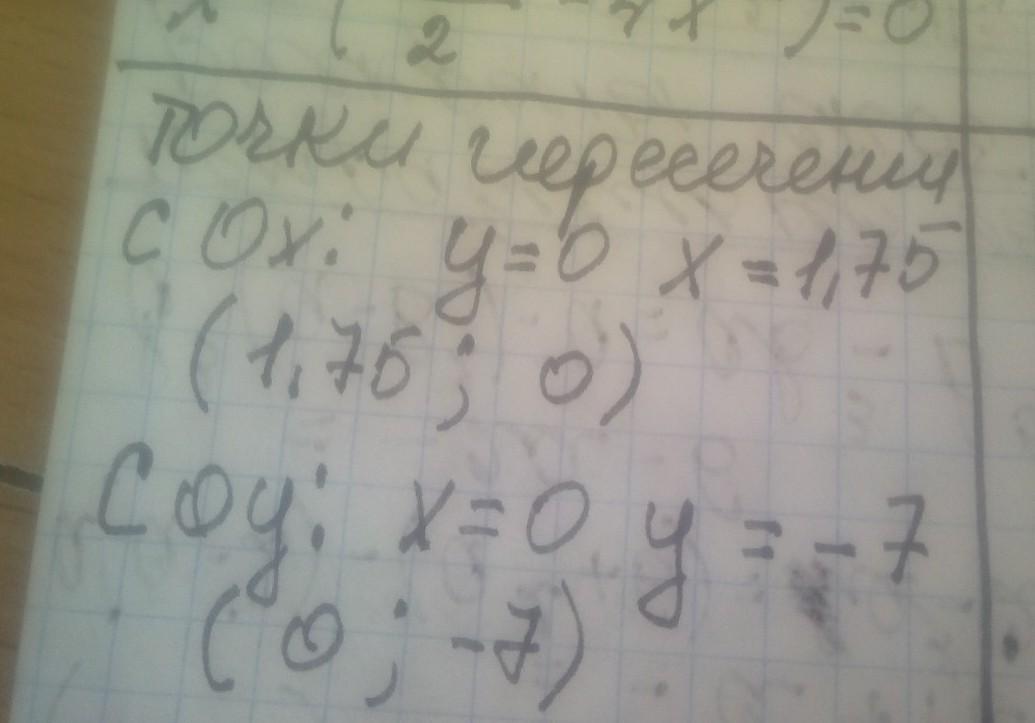 2 ) = 0
точки пересечения
с Ox: y = 0 x = 1,75
(1,75; 0)
С Oy: x = 0 y = -7
(0; -7)